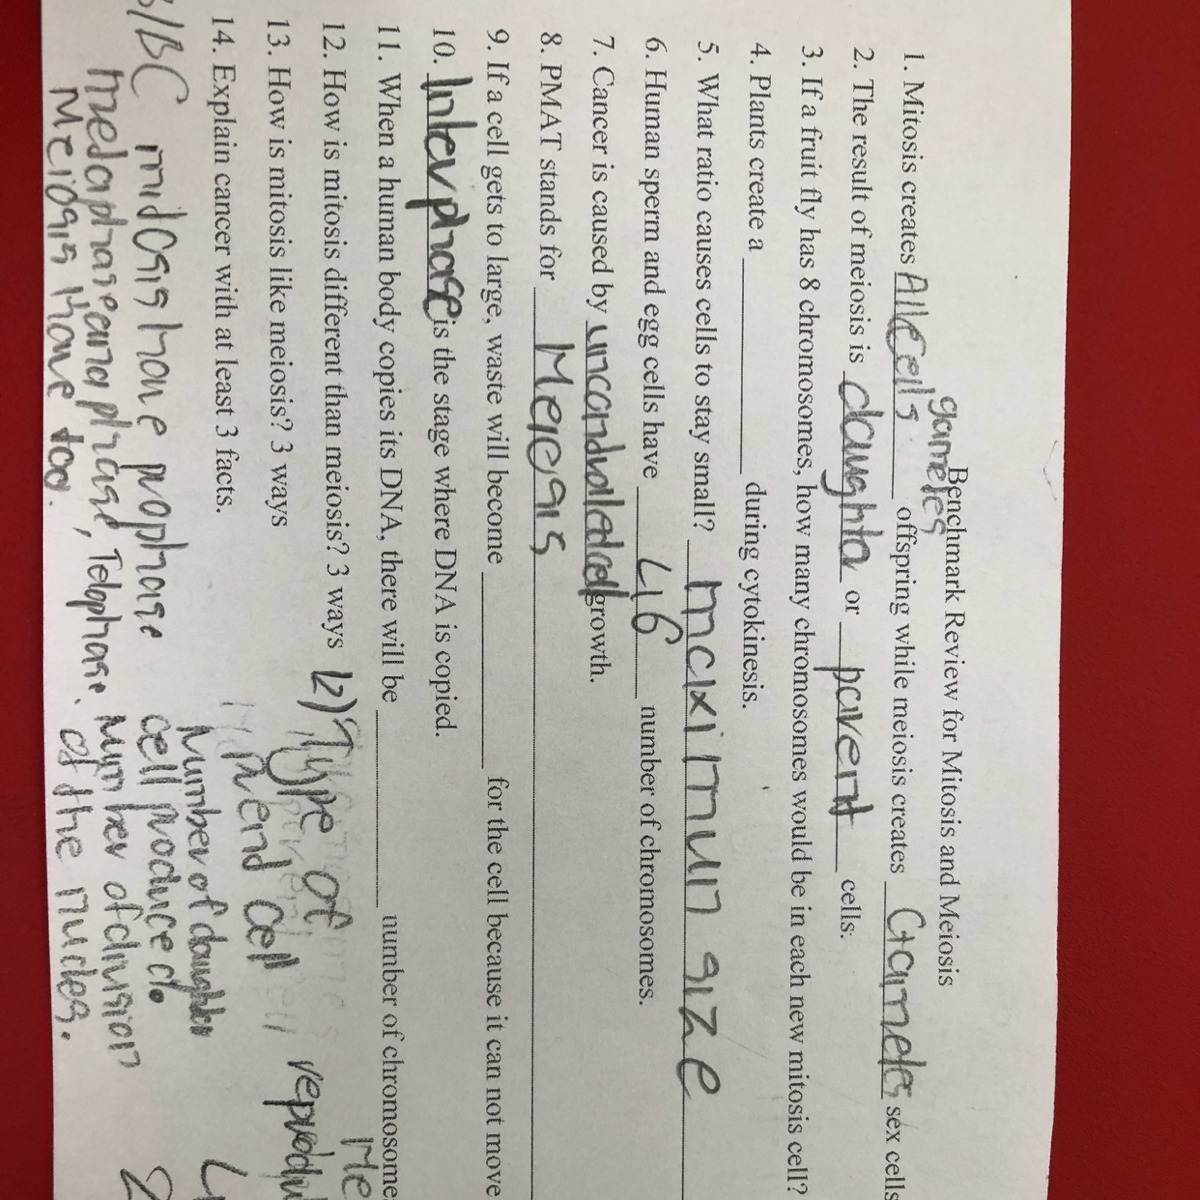 Benchmark Review for Mitosis and Meiosis
gametes
1. Mitosis creates All cells offspring while meiosis creates Gametes sex cells
2. The result of meiosis is daughta or parent cells.
3. If a fruit fly has 8 chromosomes, how many chromosomes would be in each new mitosis cell?
4. Plants create a during cytokinesis.
5. What ratio causes cells to stay small? maximum size
6. Human sperm and egg cells have 46 number of chromosomes.
7. Cancer is caused by growth.
8. PMAT stands for Meiosis
9. If a cell gets to large, waste will become for the cell because it can not move
10. Interphase is the stage where DNA is copied.
11. When a human body copies its DNA, there will be number of chromosome
12. How is mitosis different than meiosis? 3 ways 12) Type of
Me
13. How is mitosis like meiosis? 3 ways
Prend cell
14. Explain cancer with at least 3 facts.
Number of daughter
mitosis have prophase
cell produced.
medaphase and phase, Telophase.
Number of division
Meiosis have too.
of the nucles.